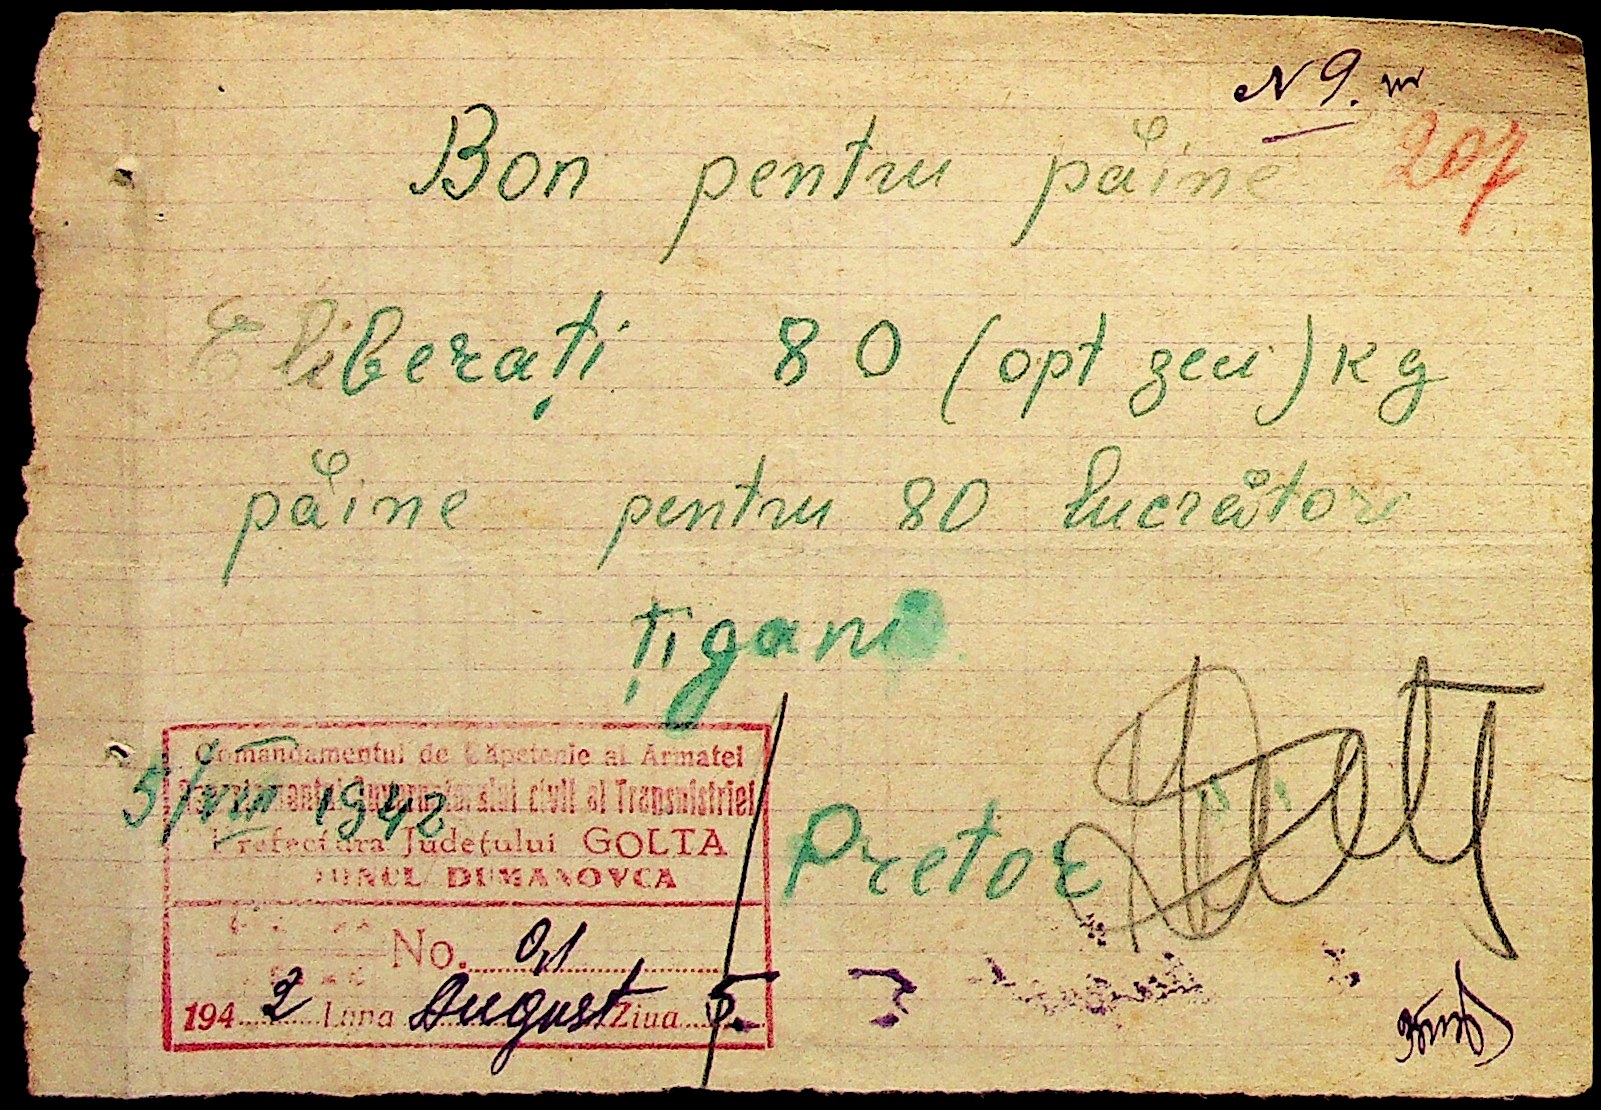 N 9.
207
Bon pentru pâine
Eliberați 80 (opt zeci) kg
pâine pentru 80 lucrători
țigani
Comandamentul de Căpetenie al Armatei
Guvernatorului civil al Transnistriei
5/VIII 1942
Prefectura Județului GOLTA
DUMANOVCA
Pretor
No.
1942 Luna August Ziua 5